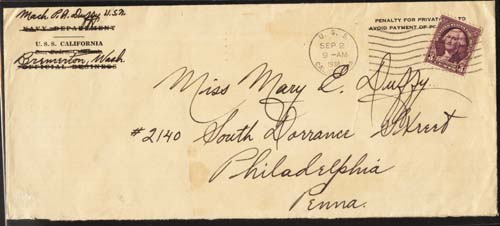 Mach P.A. Duffy, U.S.N.
NAVY DEPARTMENT
U. S. S. CALIFORNIA
Bremerton, Wash.
OFFICIAL BUSINESS
U. S. S.
SEP 2
9-AM
PENALTY FOR PRIVATE TO
AVOID PAYMENT OF PO
Miss Mary E. Duffy
#2140 South Dorrance Street
Philadelphia
Penna.